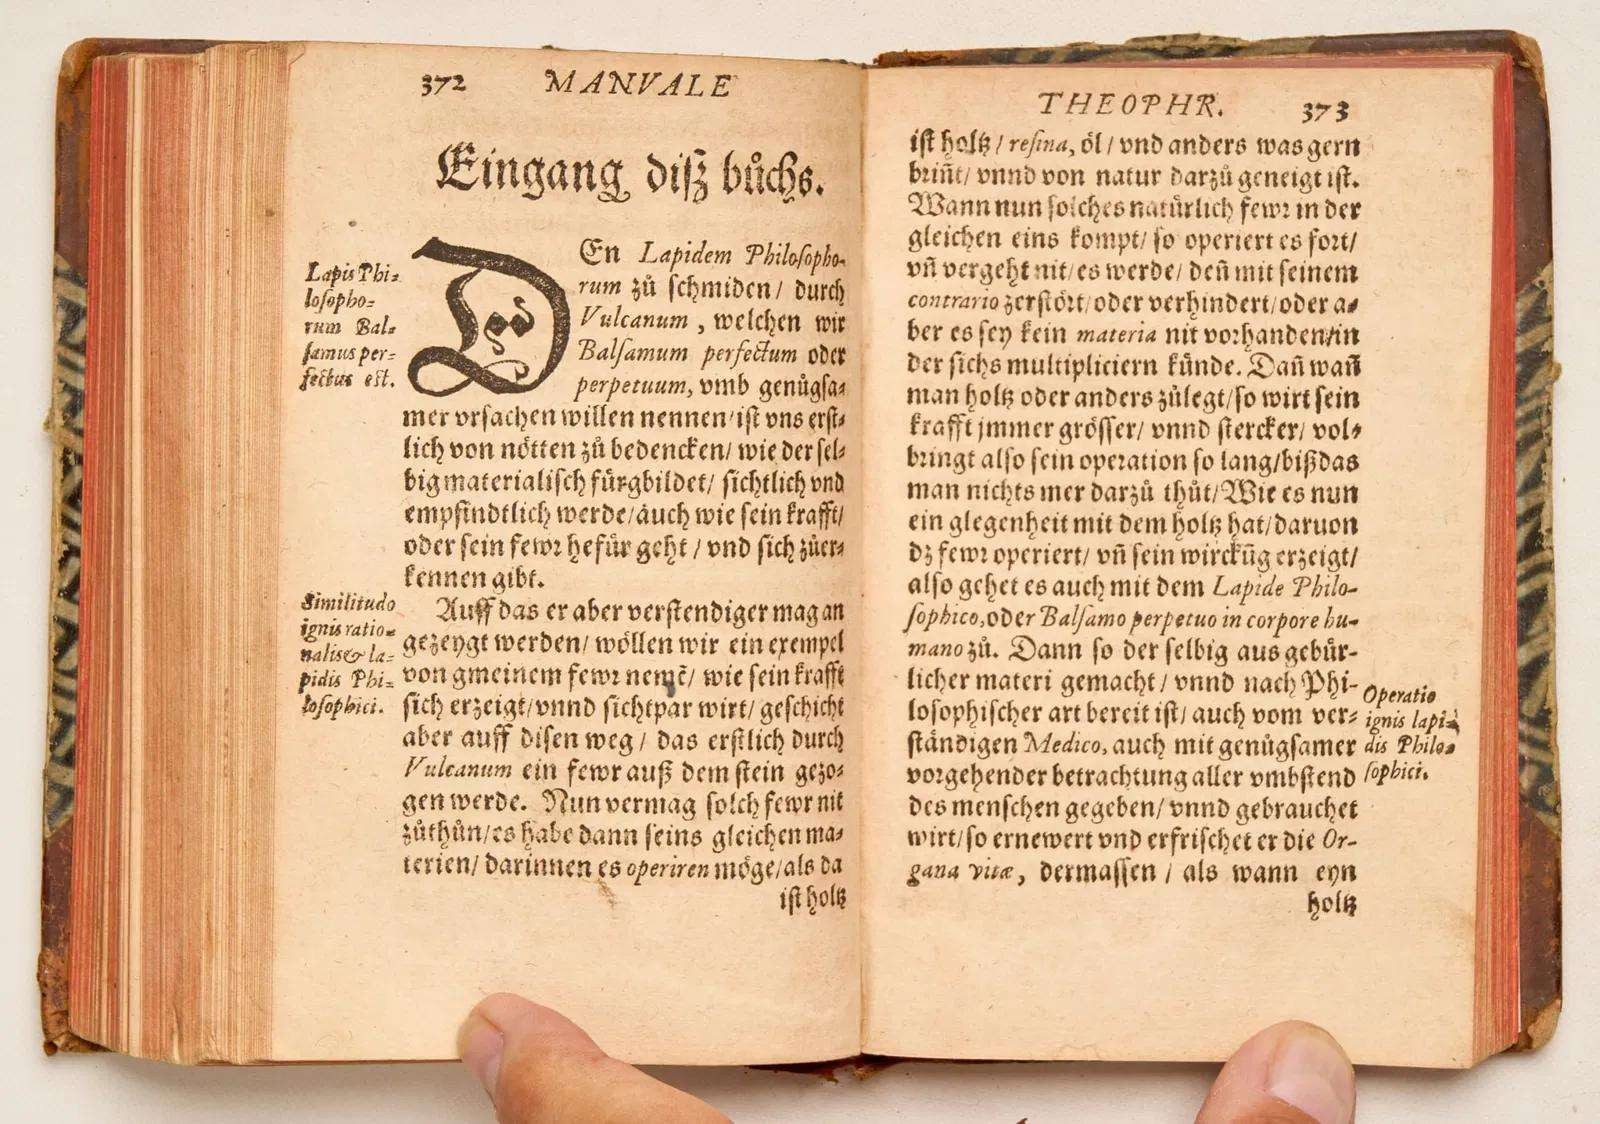 372 MANVALE
Eingang diſz bůchs.
Lapis Phi-
loſopho-
rum Bal-
ſamus per-
fectus est.
DEn Lapidem Philoſopho-
rum zů ſchmiden / durch
Vulcanum, welchen wir
Balſamum perfectum oder
perpetuum, vmb genůgſa-
mer vrſachen willen nennen / iſt vns erſt-
lich von nötten zů bedencken / wie der ſel-
big materialiſch fürgbildet / ſichtlich vnd
empfindtlich werde / auch wie ſein krafft /
oder ſein fewr hefür geht / vnd ſich zůer-
kennen gibt.
Similitudo
ignis ratio-
nalis & la-
pidis Phi-
loſophici.
Auff das er aber verſtendiger mag an
gezeygt werden / wöllen wir ein exempel
von gmeinem fewr nemẽ / wie ſein krafft
ſich erzeigt / vnnd ſichtpar wirt / geſchicht
aber auff diſen weg / das erſtlich durch
Vulcanum ein fewr auß dem ſtein gezo-
gen werde. Nun vermag ſolch fewr nit
zůthůn / es habe dann ſeins gleichen ma-
terien / darinnen es operiren möge / als da
iſt holtz
THEOPHR. 373
iſt holtz / reſina, öl / vnd anders was gern
briñt / vnnd von natur darzů geneigt iſt.
Wann nun ſolches natürlich fewr in der
gleichen eins kompt / ſo operiert es fort /
vñ vergeht nit / es werde / deñ mit ſeinem
contrario zerſtört / oder verhindert / oder a-
ber es ſey kein materia nit vorhanden / in
der ſichs multipliciern künde. Dañ wañ
man holtz oder anders zůlegt / ſo wirt ſein
krafft jmmer gröſſer / vnnd ſtercker / vol-
bringt alſo ſein operation ſo lang / biß das
man nichts mer darzů thůt / Wie es nun
ein glegenheit mit dem holtz hat / daruon
dz fewr operiert / vñ ſein wirckũg erzeigt /
alſo gehet es auch mit dem Lapide Philo-
ſophico, oder Balſamo perpetuo in corpore hu-
mano zů. Dann ſo der ſelbig aus gebür-
licher materi gemacht / vnnd nach Phi-
loſophiſcher art bereit iſt / auch vom ver-
ſtändigen Medico, auch mit genůgſamer
vorgehender betrachtung aller vmbſtend
des menſchen gegeben / vnnd gebrauchet
wirt / ſo ernewert vnd erfriſchet er die Or-
gana vitæ, dermaſſen / als wann eyn
holtz
Operatio
ignis lapi-
dis Philo-
ſophici.